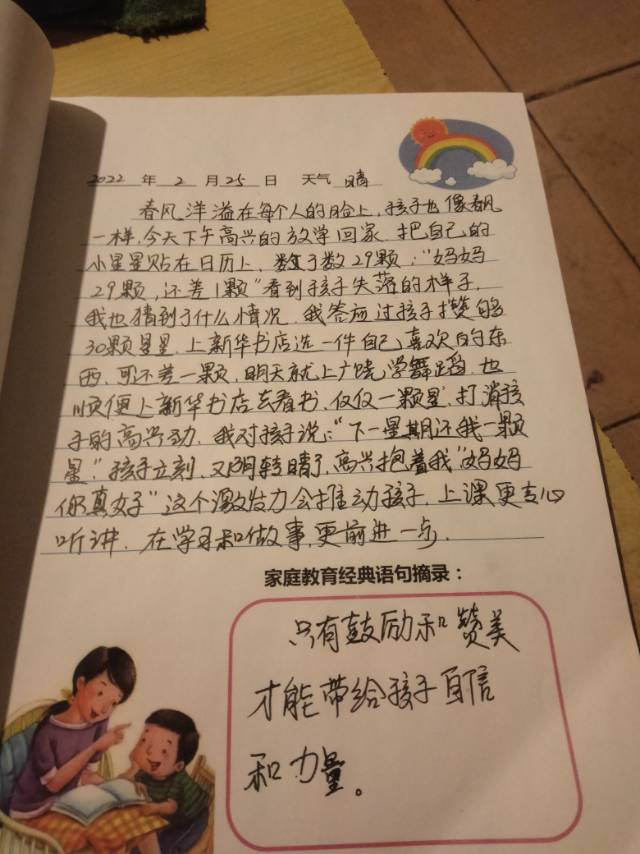 2022 年 2 月 25 日 天气 晴
春风洋溢在每个人的脸上，孩子也像春风
一样，今天下午高兴的放学回家，把自己的
小星星贴在日历上，数了数29颗：“妈妈
29颗，还差1颗”看到孩子失落的样子，
我也猜到了什么情况，我答应过孩子攒够
30颗星星，上新华书店选一件自己喜欢的东
西，可还差一颗，明天就上广饶学舞蹈，也
顺便上新华书店去看书，仅仅一颗星，打消孩
子的高兴劲，我对孩子说：“下一星期还我一颗
星”孩子立刻，又阴转晴了，高兴抱着我“妈妈
你真好”这个激发力会推动孩子，上课更专心
听讲，在学习和做事，更前进一步．
家庭教育经典语句摘录：
只有鼓励和赞美
才能带给孩子自信
和力量。